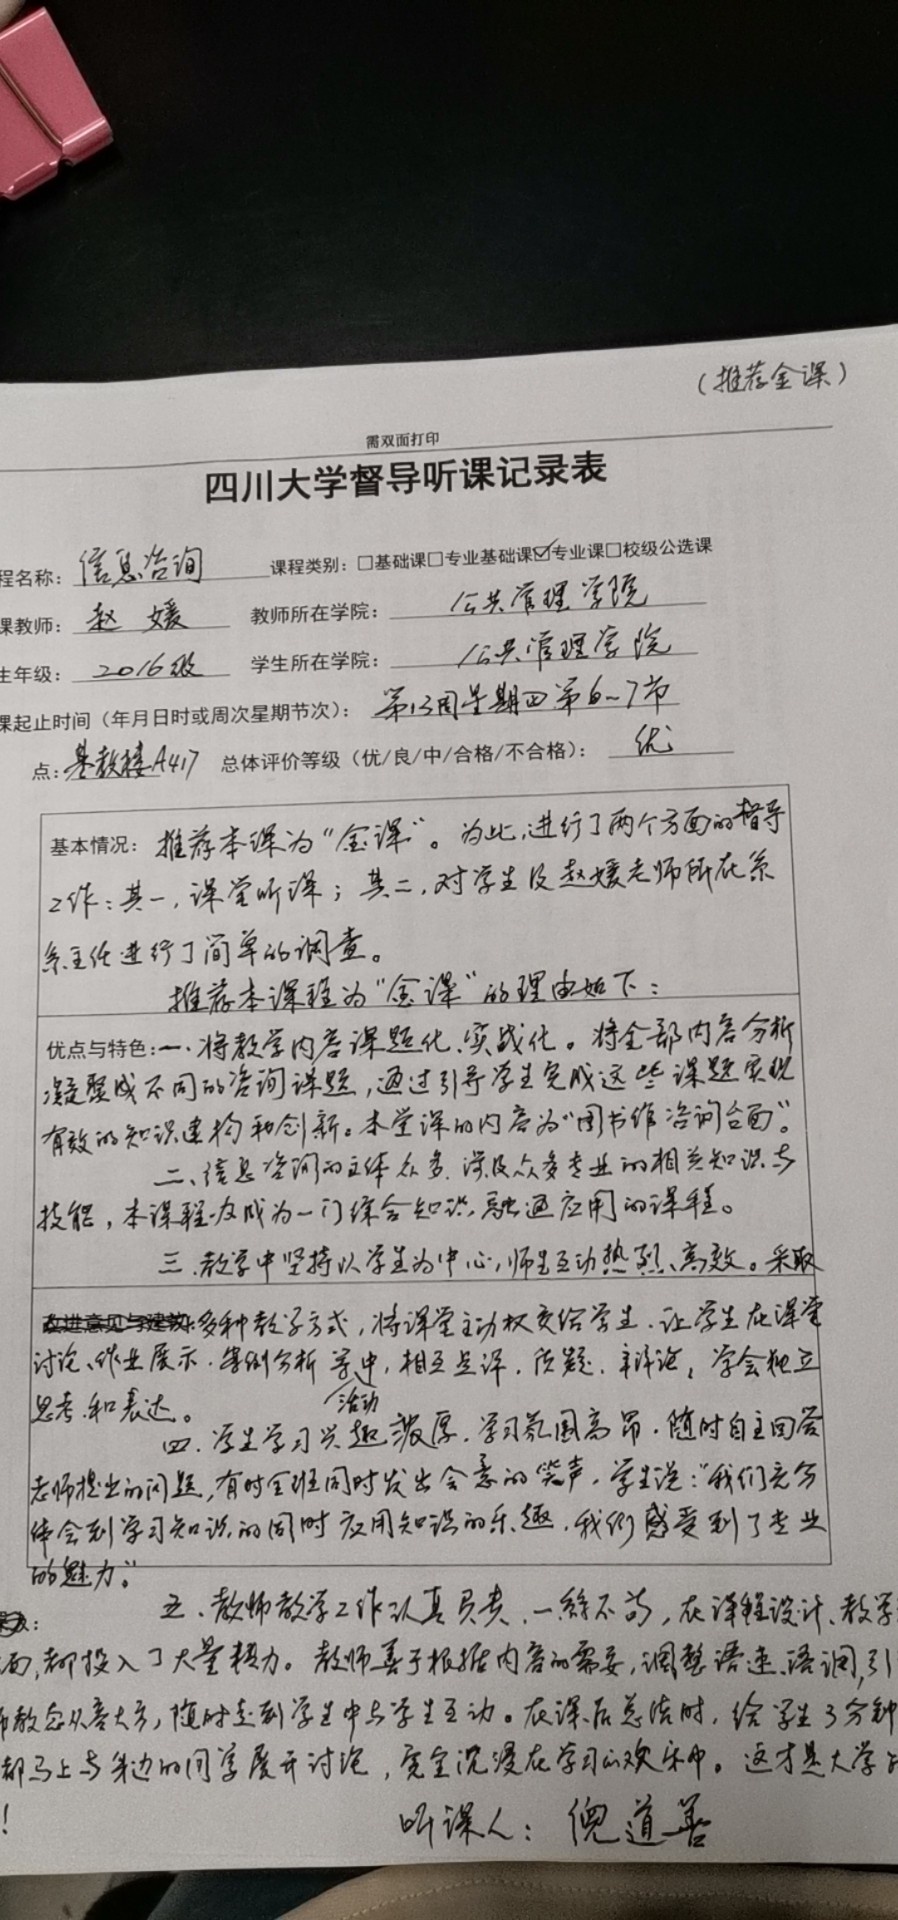 （推荐金课）
需双面打印
四川大学督导听课记录表
程名称：信息咨询 课程类别：□基础课□专业基础课☑专业课□校级公选课
课教师：赵媛 教师所在学院：公共管理学院
生年级：2016级 学生所在学院：公共管理学院
课起止时间（年月日时或周次星期节次）：第13周星期四第6~7节
点：基教楼A417 总体评价等级（优/良/中/合格/不合格）：优
基本情况：推荐本课为“金课”。为此，进行了两个方面的督导
工作：其一，课堂听课；其二，对学生及赵媛老师所在系
系主任进行了简单的调查。
推荐本课程为“金课”的理由如下：
优点与特色：一、将教学内容课题化、实战化。将全部内容分析
凝聚成不同的咨询课题，通过引导学生完成这些课题实现
有效的知识建构和创新。本堂课的内容为“图书馆咨询台面”。
二、信息咨询的主体众多，涉及众多专业的相关知识与
技能，本课程成为一门综合知识融通应用的课程。
三、教学中坚持以学生为中心，师生互动热烈、高效。采取
改进意见与建议：多种教学方式，将课堂主动权交给学生，让学生在课堂
讨论、作业展示、案例分析等活动中，相互点评、质疑、辩论，学会独立
思考和表达。
四、学生学习兴趣浓厚，学习氛围高昂，随时自主回答
老师提出的问题，有时全班同时发出会意的笑声，学生说：“我们充分
体会到学习知识的同时应用知识的乐趣，我们感受到了专业
的魅力”。
五、教师教学工作认真负责，一丝不苟，在课程设计、教学
面，都投入了大量精力。教师善于根据内容的需要，调整语速、语调，引
师教态从容大方，随时走到学生中与学生互动。在课后总结时，给学生3分钟
都马上与身边的同学展开讨论，完全沉浸在学习的欢乐中。这才是大学
！
听课人：倪道善